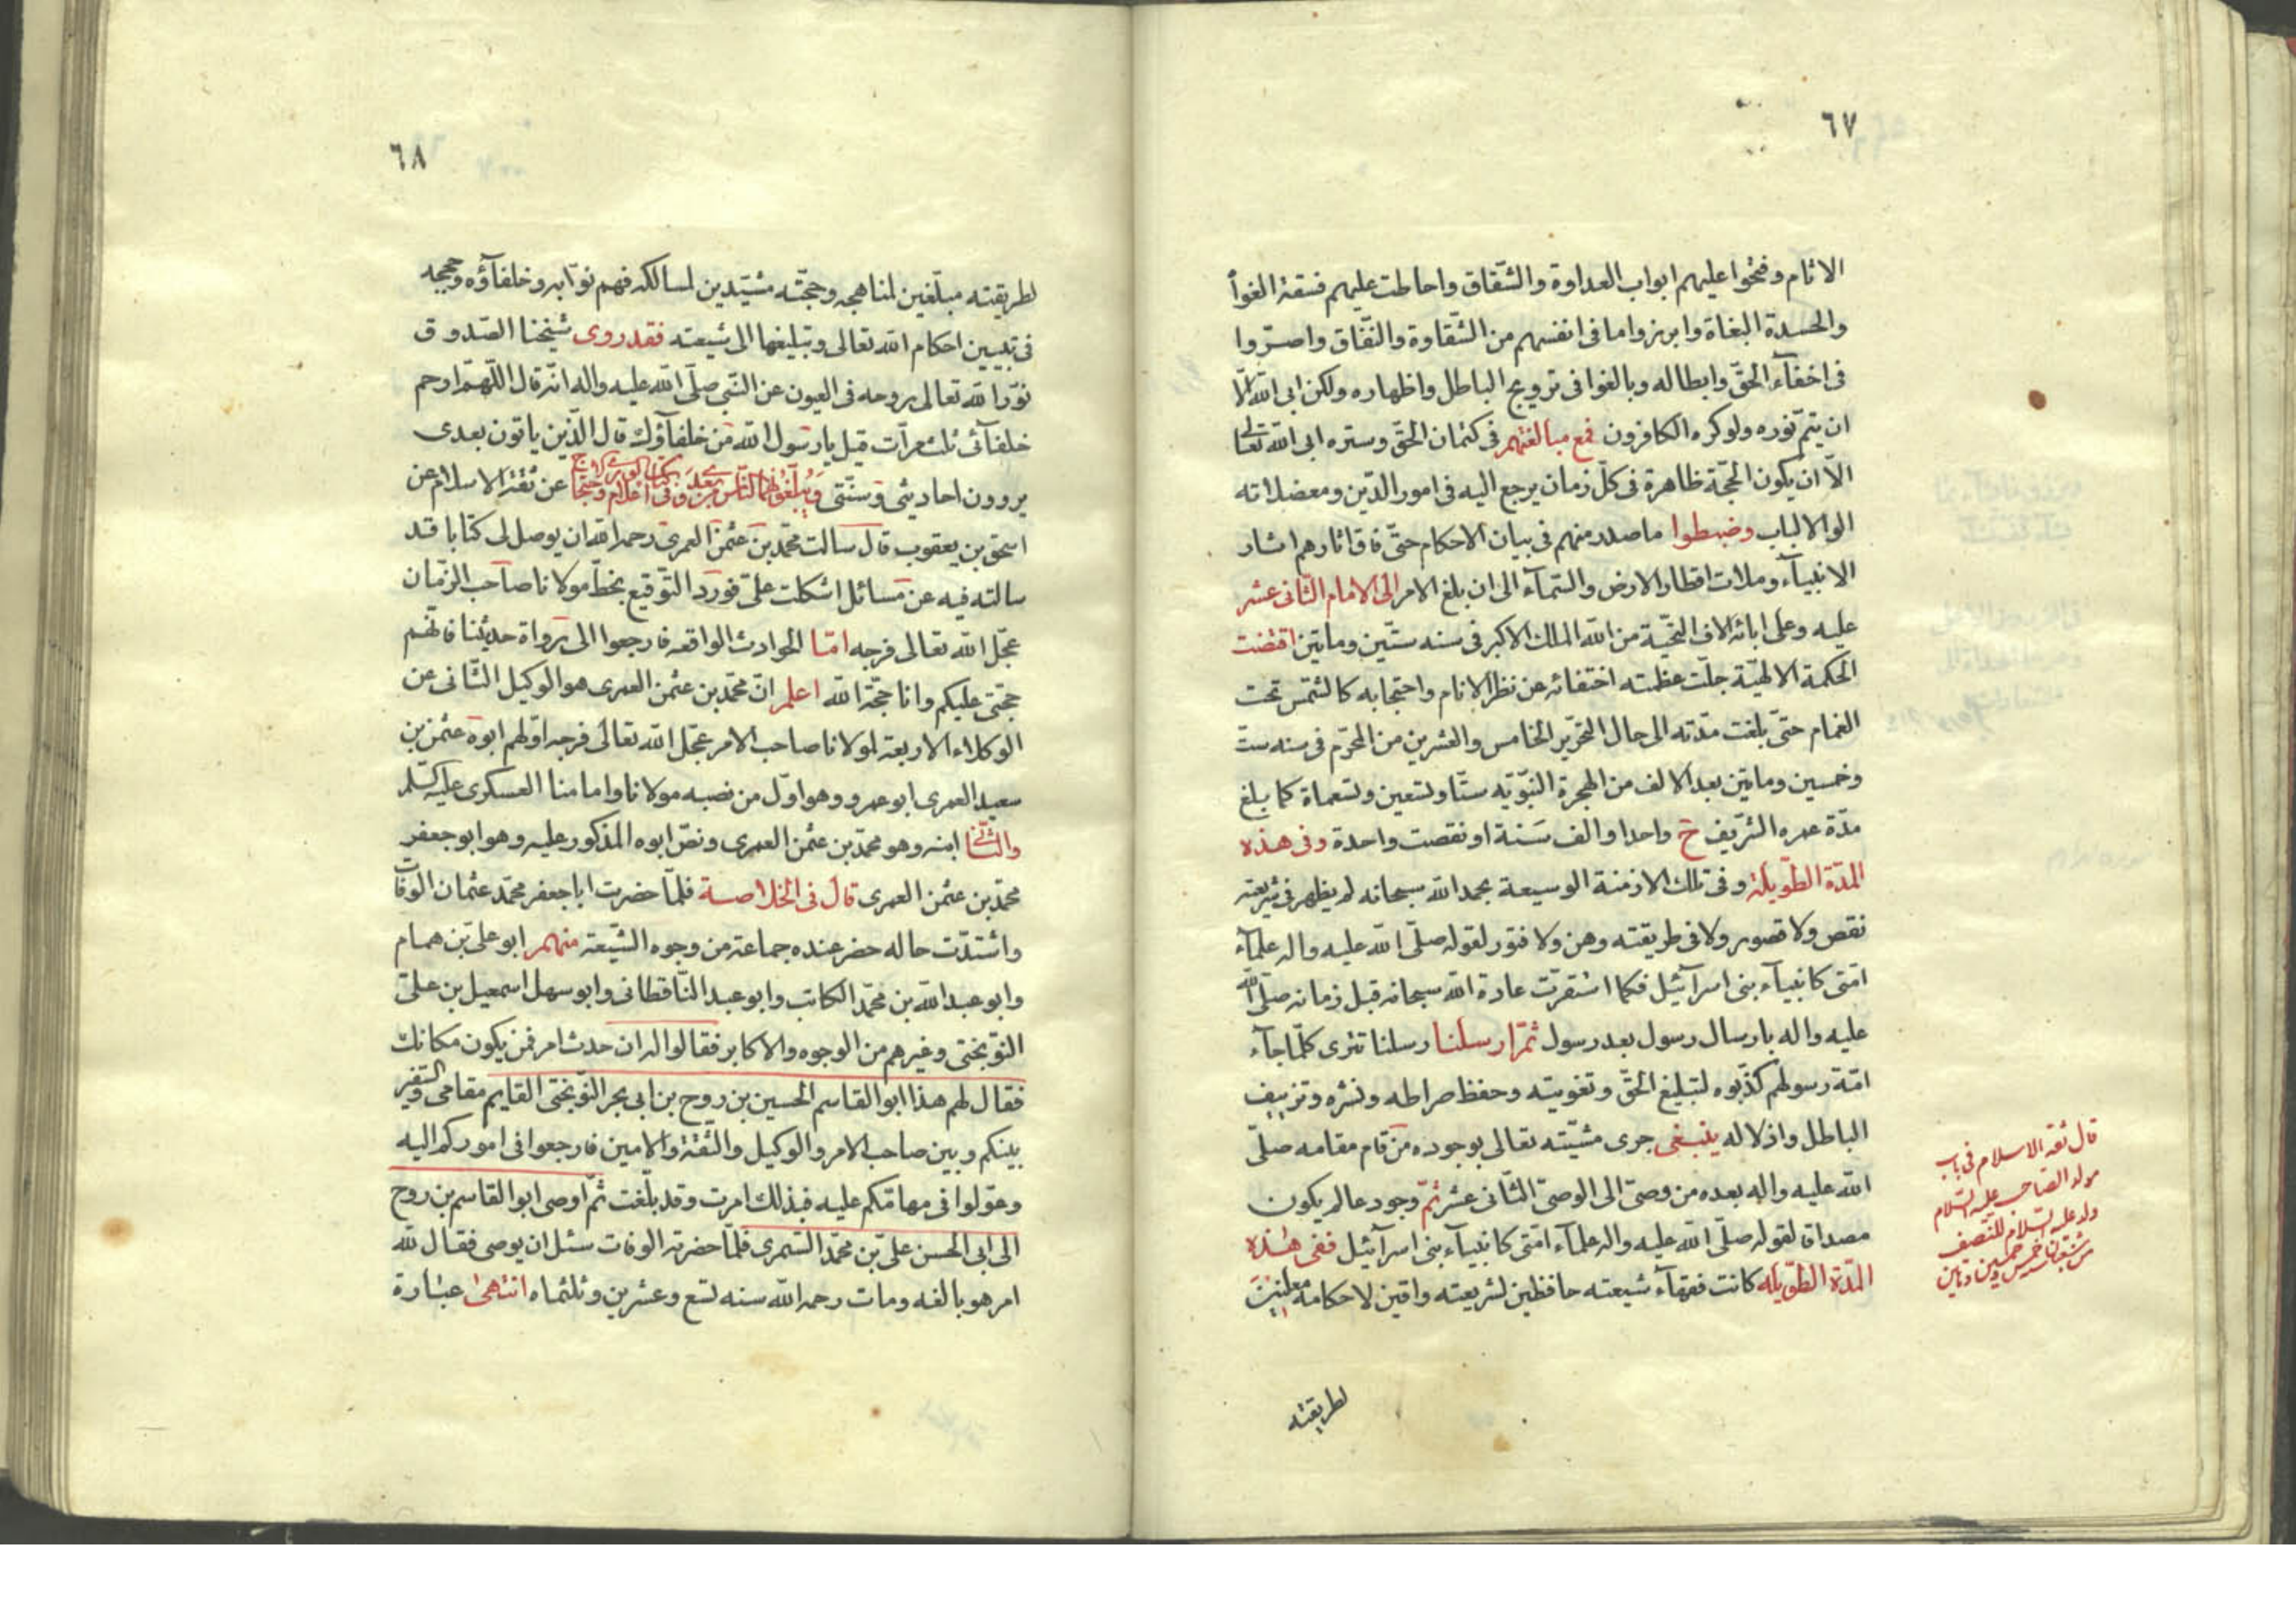 ٦٧
الاثام وفتحوا عليهم ابواب العداوة والشّقاق واحاطت عليهم فسقة الغوا
والحسدة البغاة وابرزوا ما فى انفسهم من الشّقاوة والنّفاق واصرّوا
فى اخفآء الحقّ وابطاله وبالغوا فى ترويج الباطل واظهاره ولكن ابى اللّه الّا
ان يتمّ نوره ولو كره الكافرون فمع مبالغتهم فى كتمان الحقّ وستره ابى اللّه تعالى
الّا ان يكون الحجّة ظاهرة فى كلّ زمان يرجع اليه فى امور الدّين ومعضلاته
الوا الالباب وضبطوا ما صدر منهم فى بيان الاحكام حتّى فاق اثارهم اثار
الانبيآء وملات اقطار الارض والسّمآء الى ان بلغ الامر الى الامام الثّانى عشر
عليه وعلى ابائه الاف التّحيّة من اللّه الملك الاكبر فى سنه ستّين وماتين اقتضت
الحكمة الالهيّة جلّت عظمته اختفائه عن نظر الانام واحتجابه كالشّمس تحت
الغمام حتّى بلغت مدّته الى حال التّحرير الخامس والعشرين من المحرّم فى سنه ستّ
وخمسين وماتين بعد الالف من الهجرة النّبوّيه ستّا وتسعين وتسعماة كما بلغ
مدّة عمره الشّريف ح واحدا والف سَنة او نقصت واحدة وفى هذه
المدّة الطّويلة وفى تلك الازمنة الوسيعة بحمد اللّه سبحانه لم يظهر فى شريعته
نقص ولا قصور ولا فى طريقته وهن ولا فتور لقوله صلّى اللّه عليه واله علمآء
امّتى كانبيآء بنى اسرآئيل فكما استقرّت عادة اللّه سبحانه قبل زمانه صلّى اللّه
عليه واله بارسال رسول بعد رسول ثمّ ارسلنا رسلنا تترى كلّما جآء
امّة رسولهم كذّبوه لتبليغ الحقّ وتقويته وحفظ صراطه ونشره وتزييف
الباطل واذلاله ينبغى جرى مشيّته تعالى بوجود من قام مقامه صلّى
اللّه عليه واله بعده من وصىّ الى الوصىّ الثّانى عشر ثمّ وجود عالم يكون
مصداق لقوله صلّى اللّه عليه واله علمآء امّتى كانبيآء بنى اسرآئيل ففى هذه
المدّة الطّويله كانت فقهآء شيعته حافظين لشريعته واقين لاحكامه معلنين
لطريقته
قال ثقه الاسلام فى باب
مولد الصّاحب عليه السّلام
ولد عليه السّلام للنّصف
من شعبان سنه خمس وخمسين وماتين
٦٨
لطريقته مبلّغين لمناهجه وحجّته مشيّدين لمسالكه فهم نوّابه وخلفآؤه وحججه
فى تبيين احكام اللّه تعالى وتبليغها الى شيعته فقد روى شيخنا الصّدوق
نوّر اللّه تعالى روحه فى العيون عن النّبى صلّى اللّه عليه واله انّه قال اللّهمّ ارحم
خلفآئى ثلث مرّات قيل يا رسول اللّه من خلفآؤك قال الّذين ياتون بعدى
يروون احاديثى وسنّتى عن ثقة الاسلام عن
اسحق بن يعقوب قال سالت محمّد بن عثمن العمرى رحمه اللّه ان يوصل لى كتابا قد
سالته فيه عن مسائل اشكلت علىّ فورد التّوقيع بخطّ مولانا صاحب الزّمان
عجّل اللّه تعالى فرجه امّا الحوادث الواقعه فارجعوا الى رواة حديثنا فانّهم
حجّتى عليكم وانا حجّة اللّه اعلم انّ محمّد بن عثمن العمرى هو الوكيل الثّانى عن
الوكلاء الاربعة لمولانا صاحب الامر عجّل اللّه تعالى فرجه اوّلهم ابوه عثمن بن
سعيد العمرى ابو عمرو وهو اوّل من نصبه مولانا وامامنا العسكرى عليه السّلم
والثّانى ابنه وهو محمّد بن عثمن العمرى ونصّ ابوه المذكور عليه وهو ابو جعفر
محمّد بن عثمن العمرى قال فى الخلاصة فلمّا حضرت ابا جعفر محمّد عثمان الوفات
واشتدّت حاله حضر عنده جماعة من وجوه الشّيعة منهم ابو علىّ بن همام
وابو عبد اللّه بن محمّد الكاتب وابو عبد النّاقطانى وابو سهل اسمعيل بن علىّ
النّوبختى وغيرهم من الوجوه والاكابر فقالوا له ان حدث امر فمن يكون مكانك
فقال لهم هذا ابو القاسم الحسين بن روح بن ابى بحر النّوبختى القايم مقامى والسّفير
بينكم وبين صاحب الامر والوكيل والثّقة والامين فارجعوا فى اموركم اليه
وعوّلوا فى مهامّكم عليه فبذلك امرت وقد بلّغت ثمّ اوصى ابو القاسم بن روح
الى ابى الحسن علىّ بن محمّد السّمرى فلمّا حضرته الوفات سئل ان يوصى فقال للّه
امر هو بالغه ومات رحمه اللّه سنه تسع وعشرين وثلثماه انتهى عبارة